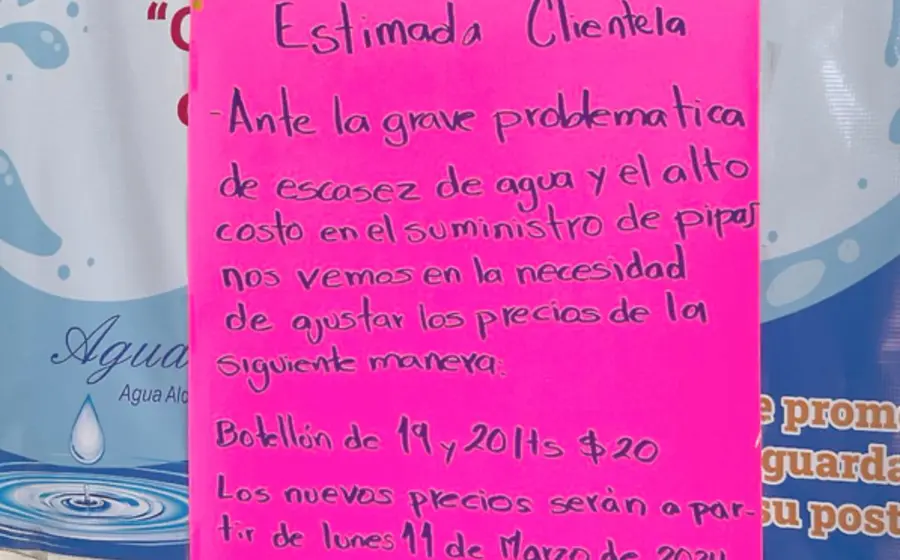 Estimada Clientela
-Ante la grave problematica
de escasez de agua y el alto
costo en el suministro de pipas
nos vemos en la necesidad
de ajustar los precios de la
siguiente manera:
Botellón de 19 y 20 lts $20
Los nuevos precios serán a par-
tir de lunes 11 de Marzo de 2024
Agua
Agua Alc
e prom
guarda
su post